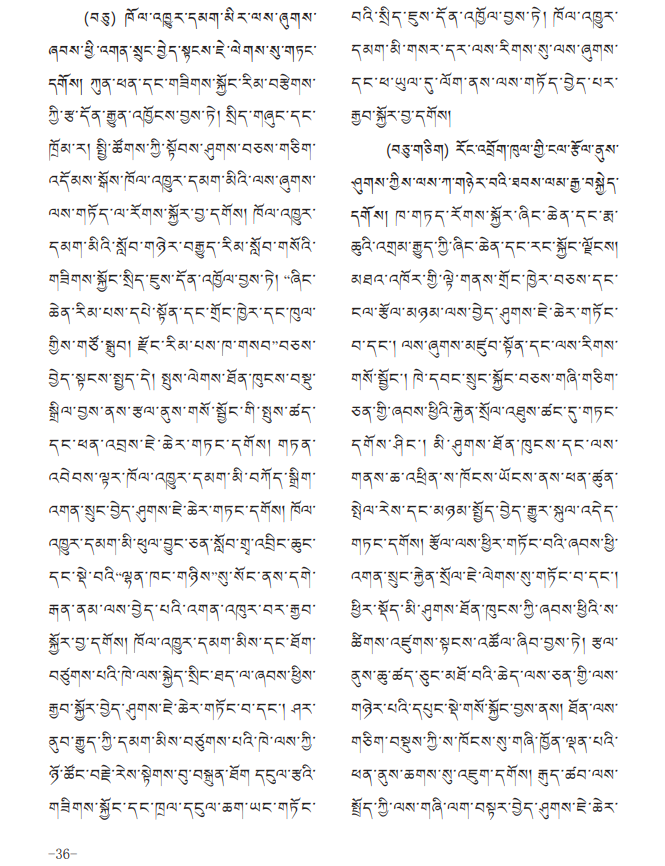 (བཅུ) ཁོལ་འཁྱུར་དམག་མིར་ལས་ཞུགས་
ཞབས་ཕྱི་འགན་སྲུང་བྱེད་སྟངས་ཇེ་ལེགས་སུ་གཏང་
དགོས། ཀུན་ཕན་དང་གཟིགས་སྐྱོང་རིམ་བརྩེགས་
ཀྱི་རྩ་དོན་རྒྱུན་འཁྱོངས་བྱས་ཏེ། སྲིད་གཞུང་དང་
ཁྲོམ་ར། སྤྱི་ཚོགས་ཀྱི་སྟོབས་ཤུགས་བཅས་གཅིག་
འདོམས་སྒོས་ཁོལ་འཁྱུར་དམག་མིའི་ལས་ཞུགས་
ལས་གཏོད་ལ་རོགས་སྐྱོར་བྱ་དགོས། ཁོལ་འཁྱུར་
དམག་མིའི་སློབ་གཉེར་བརྒྱུད་རིམ་སློབ་གསོའི་
གཟིགས་སྐྱོང་སྲིད་ཇུས་དོན་འཁྱོལ་བྱས་ཏེ། “ཞིང་
ཆེན་རིམ་པས་དཔེ་སྟོན་དང་གྲོང་ཁྱེར་དང་ཁུལ་
གྱིས་གཙོ་སྒྲུབ། རྫོང་རིམ་པས་ཁ་གསབ”བཅས་
བྱེད་སྟངས་སྤྱད་དེ། སྤུས་ལེགས་ཐོན་ཁུངས་བསྡུ་
སྒྲིལ་བྱས་ནས་རྩལ་ནུས་གསོ་སྦྱོང་གི་སྤུས་ཚད་
དང་ཕན་འབྲས་ཇེ་ཆེར་གཏང་དགོས། གཏན་
འབེབས་ལྟར་ཁོལ་འཁྱུར་དམག་མི་བཀོད་སྒྲིག་
འགན་སྲུང་བྱེད་ཤུགས་ཇེ་ཆེར་གཏང་དགོས། ཁོལ་
འཁྱུར་དམག་མི་ཕུལ་བྱུང་ཅན་སློབ་གྲྭ་འབྲིང་ཆུང་
དང་སྡེ་བའི“ལྷན་ཁང་གཉིས”སུ་སོང་ནས་དགེ་
རྒན་ནམ་ལས་བྱེད་པའི་འགན་འཁུར་བར་རྒྱབ་
སྐྱོར་བྱ་དགོས། ཁོལ་འཁྱུར་དམག་མིས་དང་ཐོག་
བཙུགས་པའི་ཁེ་ལས་སྐྱེད་སྲིང་ཐད་ལ་ཞབས་ཕྱིས་
རྒྱབ་སྐྱོར་བྱེད་ཤུགས་ཇེ་ཆེར་གཏོང་བ་དང་། ཤར་
ནུབ་རྒྱུད་ཀྱི་དམག་མིས་བཙུགས་པའི་ཁེ་ལས་ཀྱི་
ཉོ་ཚོང་བརྗེ་རེས་སྟེགས་བུ་བསྐྲུན་ཐོག དངུལ་རྩའི་
གཟིགས་སྐྱོང་དང་ཁྲལ་དངུལ་ཆག་ཡང་གཏོང་
བའི་སྲིད་ཇུས་དོན་འཁྱོལ་བྱས་ཏེ། ཁོལ་འཁྱུར་
དམག་མི་གསར་དར་ལས་རིགས་སུ་ལས་ཞུགས་
དང་ཕ་ཡུལ་དུ་ལོག་ནས་ལས་གཏོད་བྱེད་པར་
རྒྱབ་སྐྱོར་བྱ་དགོས།
(བཅུ་གཅིག) རོང་འབྲོག་ཁུལ་གྱི་ངལ་རྩོལ་ནུས་
ཤུགས་ཀྱིས་ལས་ཀ་གཉེར་བའི་ཐབས་ལམ་རྒྱ་བསྐྱེད་
དགོས། ཁ་གཏད་རོགས་སྐྱོར་ཞིང་ཆེན་དང་རྨ་
ཆུའི་འགྲམ་རྒྱུད་ཀྱི་ཞིང་ཆེན་དང་རང་སྐྱོང་ལྗོངས།
མཐའ་འཁོར་གྱི་ལྟེ་གནས་གྲོང་ཁྱེར་བཅས་དང་
ངལ་རྩོལ་མཉམ་ལས་བྱེད་ཤུགས་ཇེ་ཆེར་གཏོང་
བ་དང་། ལས་ཞུགས་མཛུབ་སྟོན་དང་ལས་རིགས་
གསོ་སྦྱོང་། ཁེ་དབང་སྲུང་སྐྱོང་བཅས་གཞི་གཅིག་
ཅན་གྱི་ཞབས་ཕྱིའི་རྐྱེན་སྲོལ་འཐུས་ཚང་དུ་གཏང་
དགོས་ཤིང་། མི་ཤུགས་ཐོན་ཁུངས་དང་ལས་
གནས་ཆ་འཕྲིན་ས་ཁོངས་ཡོངས་ནས་ཕན་ཚུན་
སྤེལ་རེས་དང་མཉམ་སྤྱོད་བྱེད་རྒྱུར་སྐུལ་འདེད་
གཏང་དགོས། རྩོལ་ལས་ཕྱིར་གཏོང་བའི་ཞབས་ཕྱི་
འགན་སྲུང་རྐྱེན་སྲོལ་ཇེ་ལེགས་སུ་གཏོང་བ་དང་།
ཕྱིར་སྡོད་མི་ཤུགས་ཐོན་ཁུངས་ཀྱི་ཞབས་ཕྱིའི་ས་
ཚིགས་འཛུགས་སྟངས་འཚོལ་ཞིབ་བྱས་ཏེ། རྩལ་
ནུས་ཆུ་ཚད་ཅུང་མཐོ་བའི་ཆེད་ལས་ཅན་གྱི་ལས་
གཉེར་པའི་དཔུང་སྡེ་གསོ་སྐྱོང་བྱས་ནས། ཐོན་ལས་
གཅིག་བསྡུས་ཀྱི་ས་ཁོངས་སུ་གཞི་ཁྱོན་ལྡན་པའི་
ཕན་ནུས་ཆགས་སུ་འཇུག་དགོས། རྒུད་ཚབ་ལས་
སྤྲོད་ཀྱི་ལས་གཞི་ལག་བསྟར་བྱེད་ཤུགས་ཇེ་ཆེར་
-36-